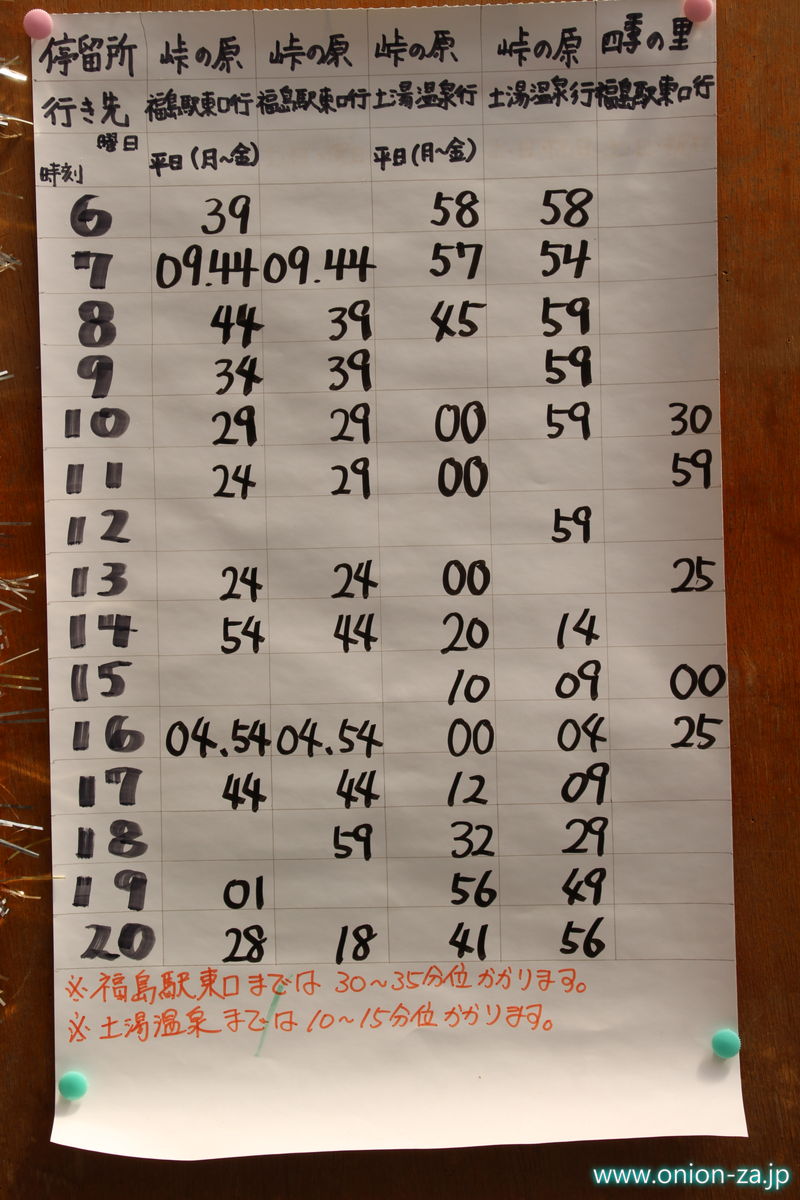 停留所 峠の原 峠の原 峠の原 峠の原 四季の里
行き先 福島駅東口行 福島駅東口行 土湯温泉行 土湯温泉行 福島駅東口行
曜日 平日(月~金) 平日(月~金)
時刻
6 39 58 58
7 09.44 09.44 57 54
8 44 39 45 59
9 34 39 59
10 29 29 00 59 30
11 24 29 00 59
12 59
13 24 24 00 25
14 54 44 20 14
15 10 09 00
16 04.54 04.54 00 04 25
17 44 44 12 09
18 59 32 29
19 01 56 49
20 28 18 41 56
※福島駅東口までは 30~35分位かかります。
※土湯温泉までは10~15分位かかります。
www.onion-za.jp